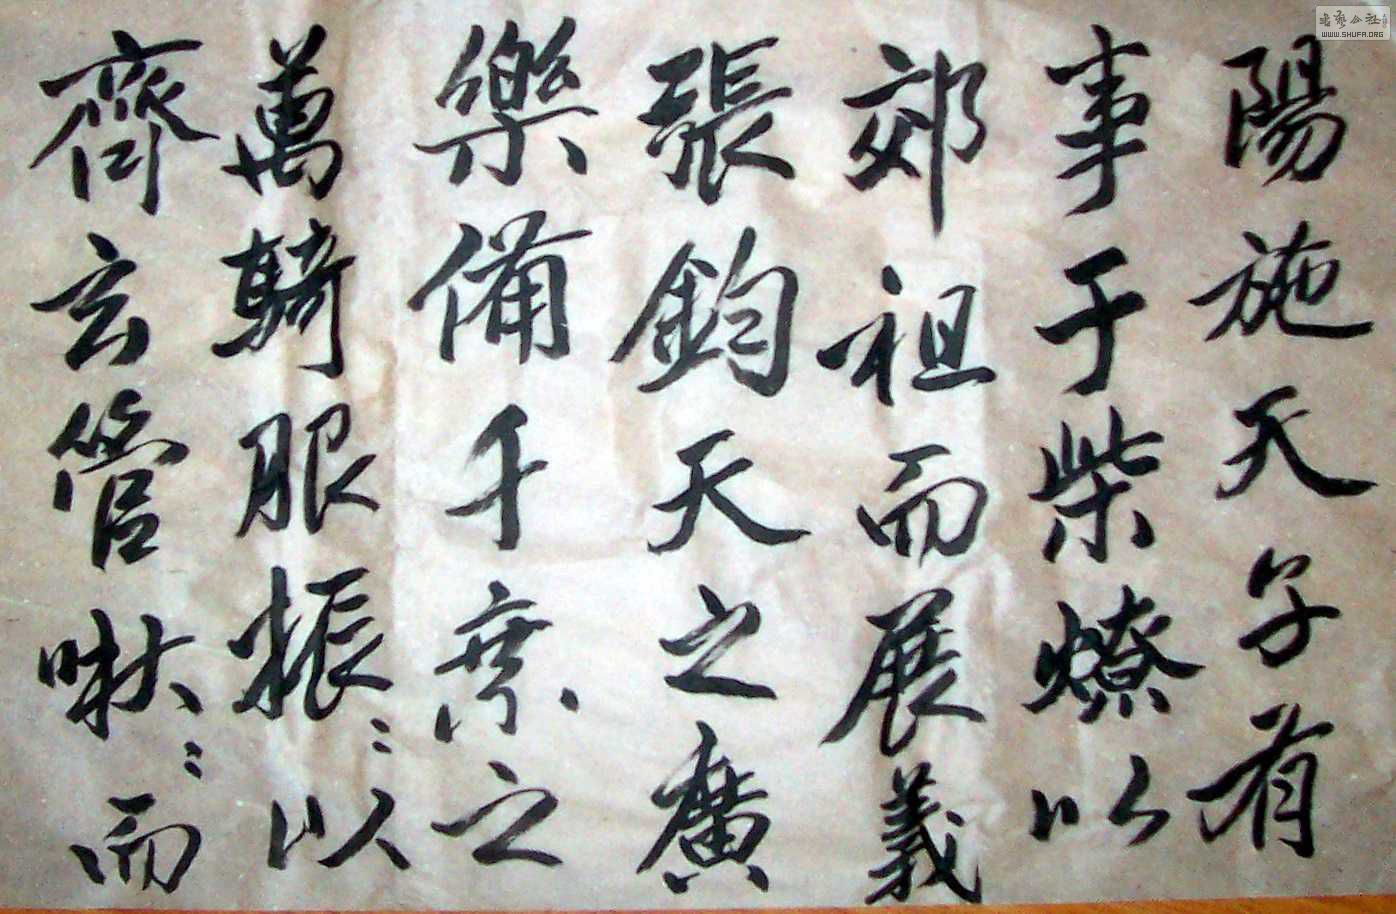 陽施天子有
事于柴燎以
郊祖而展義
張鈞天之廣
樂備千乘之
萬騎服振〻以
齊玄管啾〻而
WWW.SHUFA.ORG